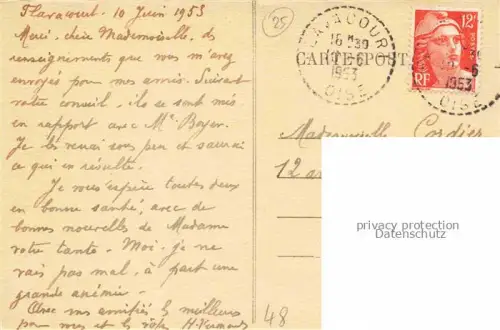 Flavacourt. 10 Juin 1953
Merci, chère Mademoiselle, des
renseignements que vous m'avez
envoyés pour mes amies. Suivant
votre conseil, ils se sont mis
en rapport avec Mr. Boyer.
Je les verrai sous peu et saurai
ce qui en résulte.
Je vous espère toutes deux
en bonne santé, avec de
bonnes nouvelles de Madame
votre tante. Moi, je ne
vais pas mal, à part une
grande anémie.
Avec mes amitiés les meilleures
pour vous et les vôtres
25
CARTE POST
FLAVACOURT
16 H 30
1953
OISE
12F
RF
POSTES
1953
OISE
Mademoiselle Cordier
12
privacy protection
Datenschutz
48